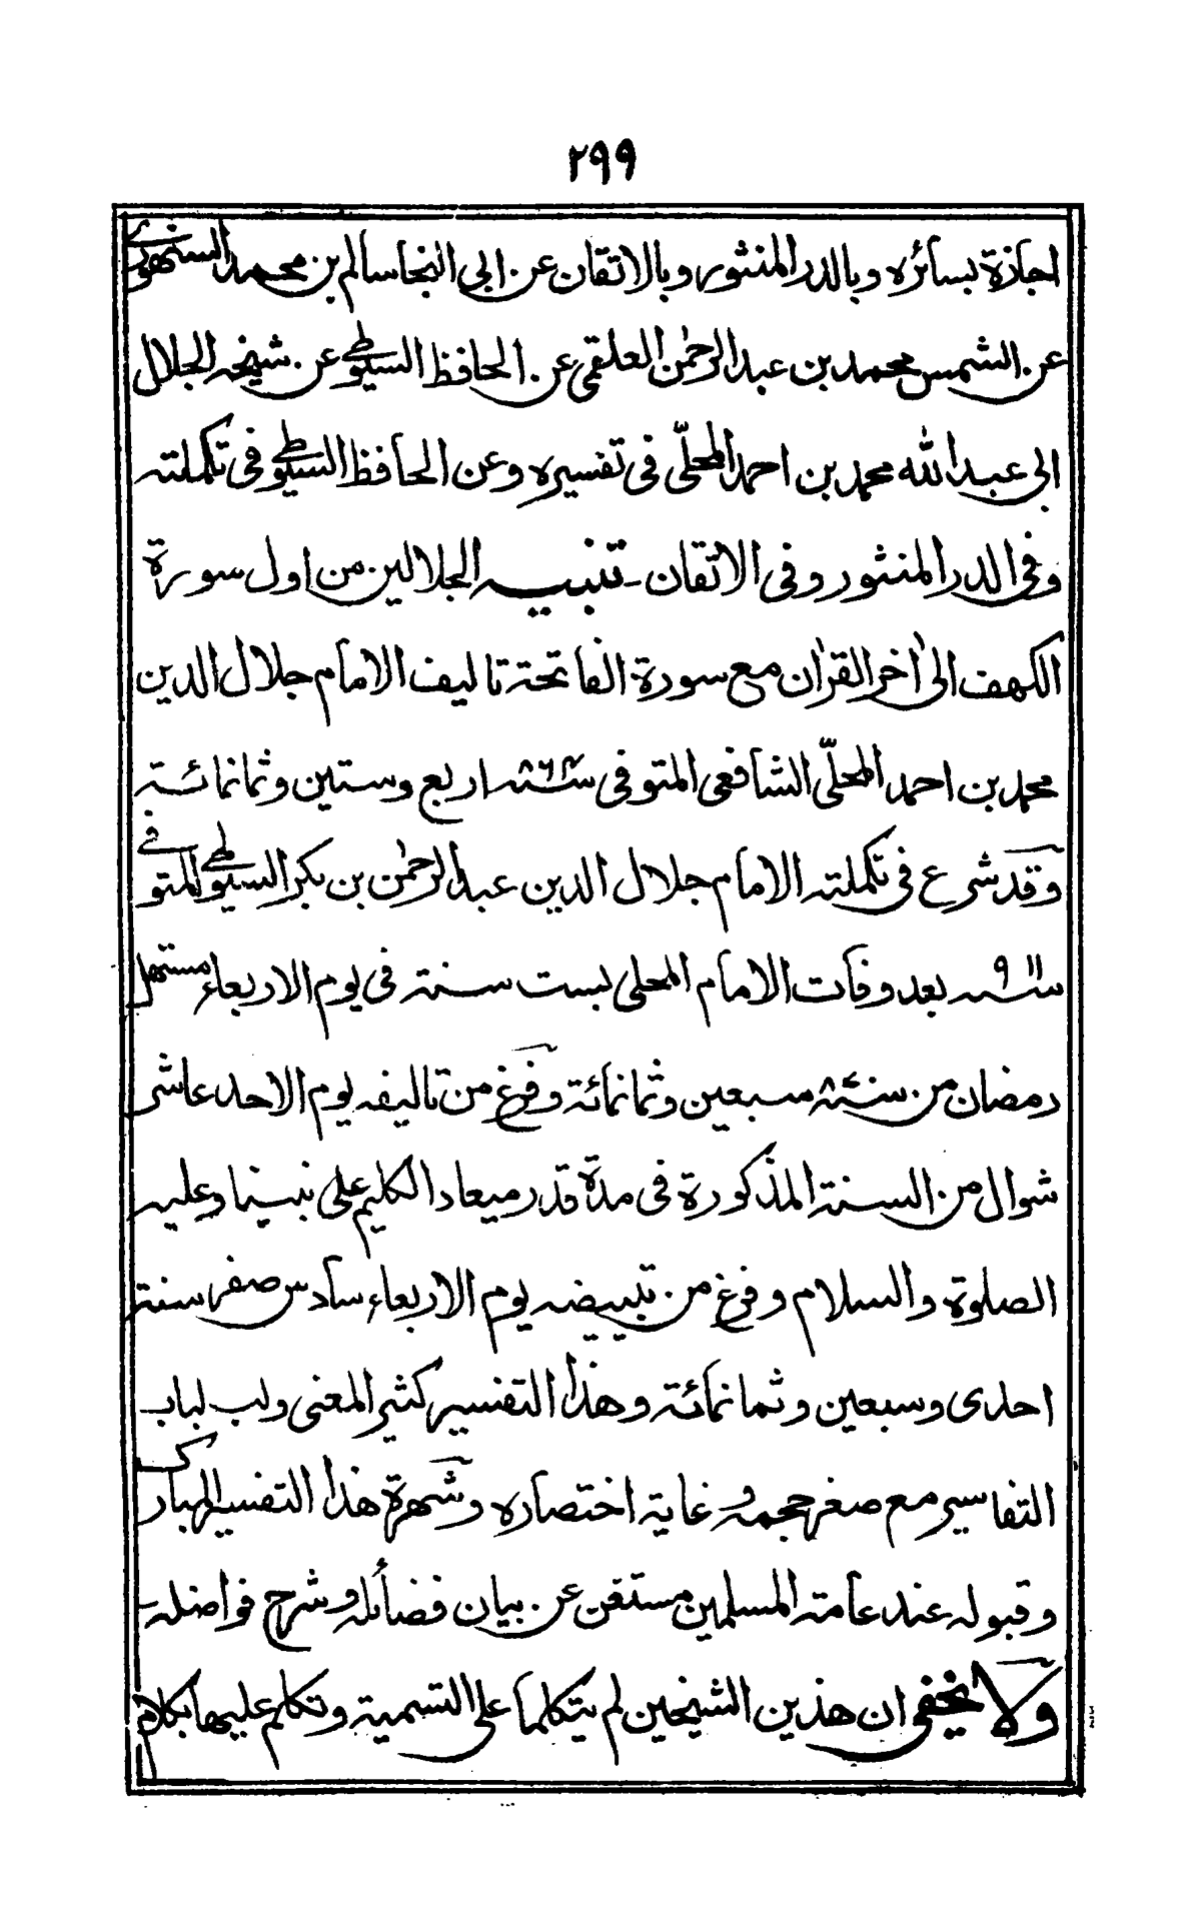 ٢٩٩
اجازة بسائره وبالدر المنثور وبالاتقان عن ابي النجا سالم بن محمد السنهوري
عن الشمس محمد بن عبد الرحمٰن العلقمي عن الحافظ السيوطي عن شيخه الجلال
ابي عبد الله محمد بن احمد المحلّي في تفسيره وعن الحافظ السيوطي في تكملته
وفي الدر المنثور وفي الاتقان - تنبيه الجلالين من اول سورة
الكهف الىٰ اٰخر القراٰن مع سورة الفاتحة تاليف الامام جلال الدين
محمد بن احمد المحلّي الشافعي المتوفى سنة ٨٦٤ اربع وستين وثمانمائة
وقد شرع في تكملته الامام جلال الدين عبد الرحمٰن بن بكر السيوطي المتوفى
سنة ٩١١ بعد وفات الامام المحلي بست سنة في يوم الاربعاء مستهل
رمضان من سنة ٨٧٠ سبعين وثمانمائة وفرغ من تاليفه يوم الاحد عاشر
شوال من السنة المذكورة في مدة قدر ميعاد الكليم على نبينا وعليه
الصلوة والسلام وفرغ من تبييضه يوم الاربعاء سادس صفر سنة
احدى وسبعين وثمانمائة وهذا التفسير كثير المعنى ولب لباب
التفاسير مع صغر حجمه وغاية اختصاره وشهرة هذا التفسير المبارك
وقبوله عند عامة المسلمين مستغن عن بيان فضائله وشرح فواضله
ولا يخفى ان هذين الشيخين لم يتكلما على التسمية وتكلم عليها بكلام